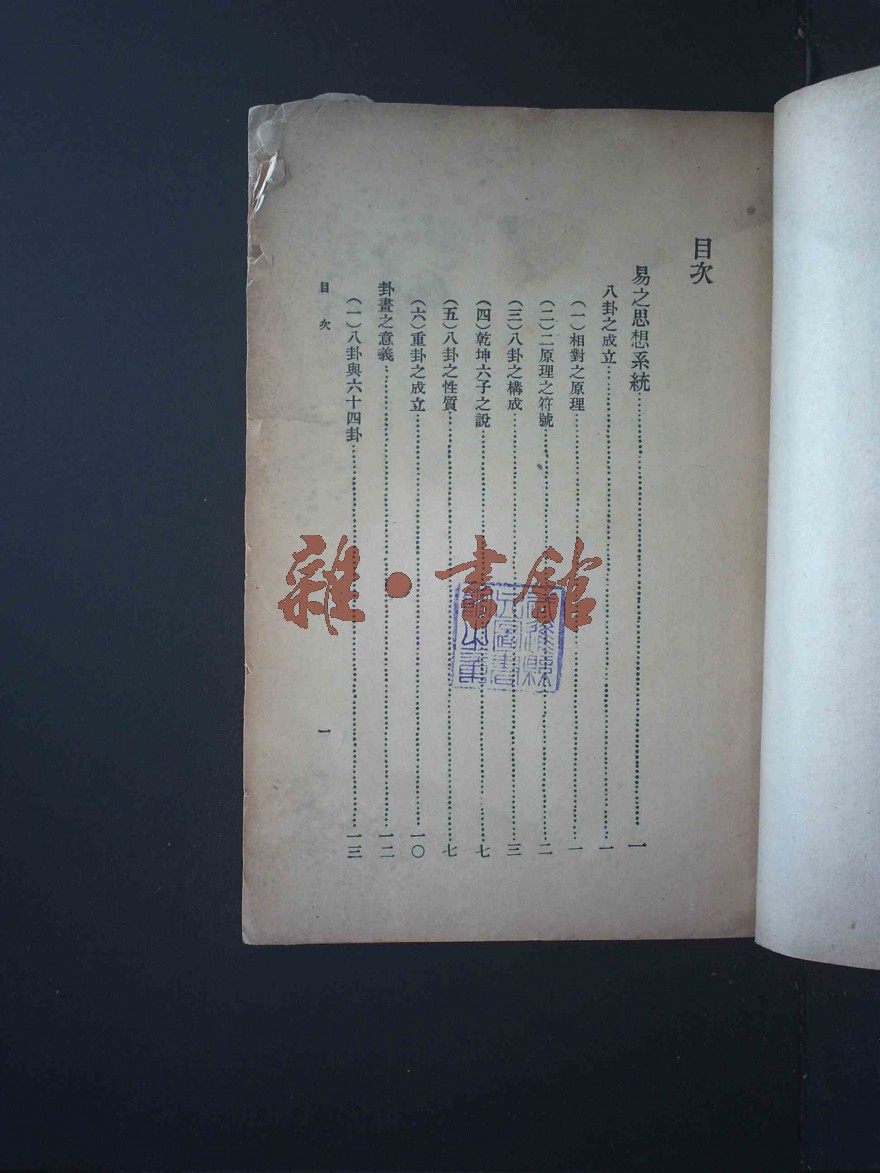 目次
易之思想系統……一
八卦之成立……一
（一）相對之原理……一
（二）二原理之符號……二
（三）八卦之構成……三
（四）乾坤六子之說……七
（五）八卦之性質……七
（六）重卦之成立……一〇
卦畫之意義……一二
（一）八卦與六十四卦……一三
目次
一
雜·書館